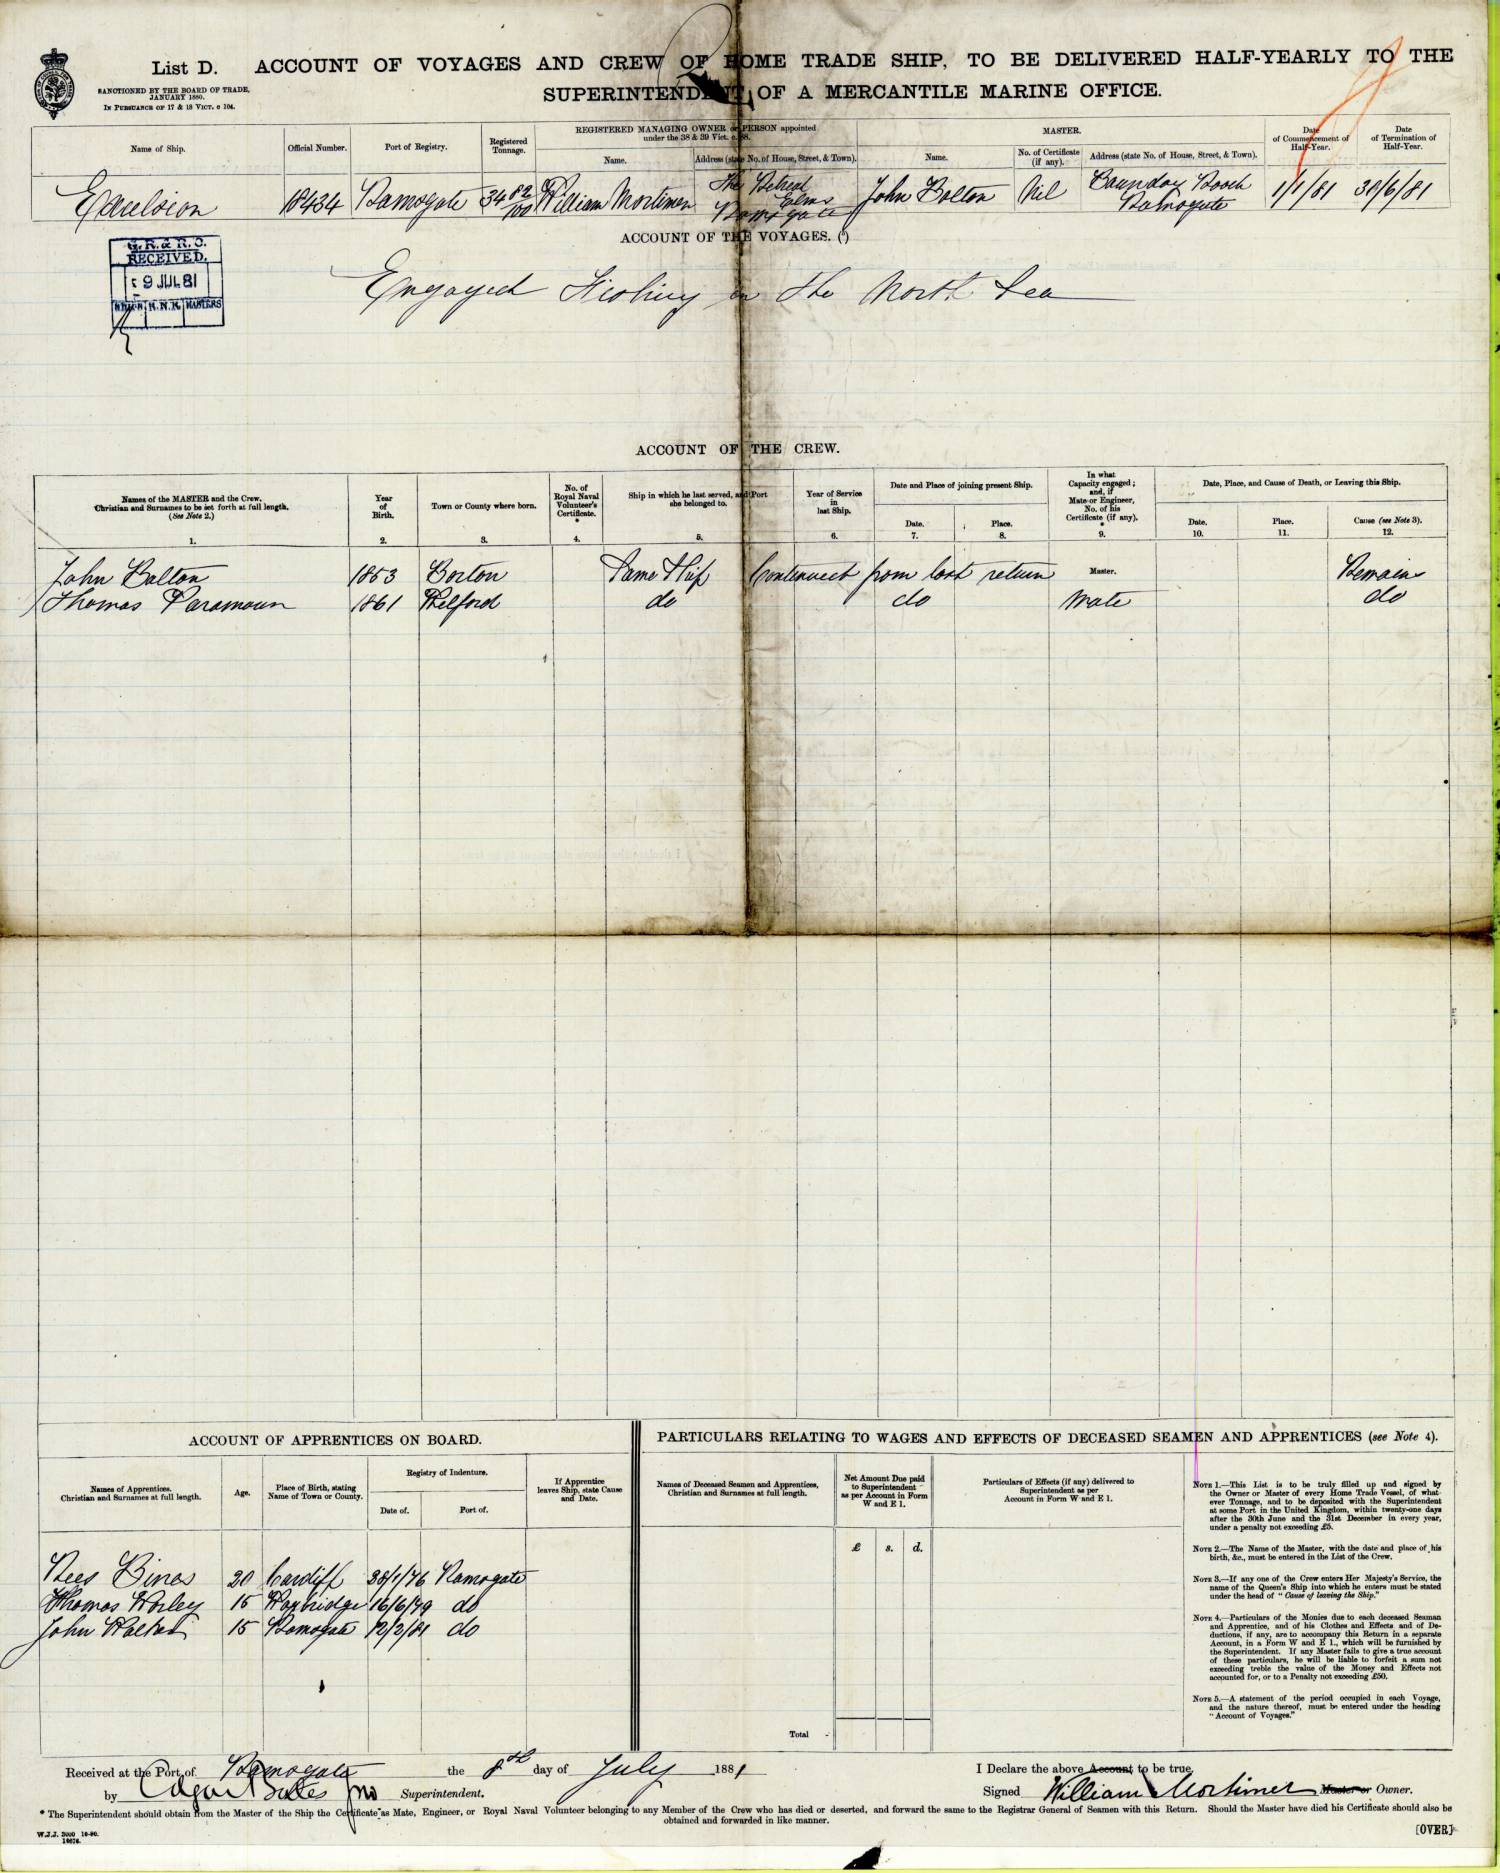 List D. ACCOUNT OF VOYAGES AND CREW OF HOME TRADE SHIP, TO BE DELIVERED HALF-YEARLY TO THE
SUPERINTENDENT OF A MERCANTILE MARINE OFFICE.
SANCTIONED BY THE BOARD OF TRADE,
JANUARY 1880.
IN PURSUANCE OF 17 & 18 VICT. c 104.
Name of Ship.
Official Number.
Port of Registry.
Registered Tonnage.
REGISTERED MANAGING OWNER or PERSON appointed
under the 38 & 39 Vict. c. 88.
Name.
Address (state No. of House, Street, & Town).
MASTER.
Name.
No. of Certificate (if any).
Address (state No. of House, Street, & Town).
Date of Commencement of Half-Year.
Date of Termination of Half-Year.
Excelsior
Ramsgate
34 82/100
William Mortimer
The Retreat
Elms
Ramsgate
John Bolton
Nil
Ramsgate
1/1/81
30/6/81
ACCOUNT OF THE VOYAGES. (5)
G. R. & R. O.
RECEIVED.
9 JUL 81
MASTERS
Engaged Fishing in the North Sea
ACCOUNT OF THE CREW.
Names of the MASTER and the Crew.
Christian and Surnames to be set forth at full length.
(See Note 2.)
1.
Year of Birth.
2.
Town or County where born.
3.
No. of Royal Naval Volunteer's Certificate.
*
4.
Ship in which he last served, and Port she belonged to.
5.
Year of Service in last Ship.
6.
Date and Place of joining present Ship.
Date.
7.
Place.
8.
In what Capacity engaged; and, if Mate or Engineer, No. of his Certificate (if any).
*
9.
Date, Place, and Cause of Death, or Leaving this Ship.
Date.
10.
Place.
11.
Cause (see Note 3).
12.
John Bolton 1853 Boston Same Ship Continued from last return Master. Remains
Thomas Paramour 1861 do do Mate do
ACCOUNT OF APPRENTICES ON BOARD.
Names of Apprentices.
Christian and Surnames at full length.
Age.
Place of Birth, stating Name of Town or County.
Registry of Indenture.
Date of.
Port of.
If Apprentice leaves Ship, state Cause and Date.
Rees Bines 20 Cardiff Ramsgate
Thomas Worley 15 Uxbridge 16/6/79 do
John 15 Ramsgate 12/2/81 do
PARTICULARS RELATING TO WAGES AND EFFECTS OF DECEASED SEAMEN AND APPRENTICES (see Note 4).
Names of Deceased Seamen and Apprentices,
Christian and Surnames at full length.
Net Amount Due paid to Superintendent as per Account in Form W and E 1.
£ s. d.
Particulars of Effects (if any) delivered to
Superintendent as per
Account in Form W and E 1.
Total
NOTE 1.—This List is to be truly filled up and signed by
the Owner or Master of every Home Trade Vessel, of what-
ever Tonnage, and to be deposited with the Superintendent
at some Port in the United Kingdom, within twenty-one days
after the 30th June and the 31st December in every year,
under a penalty not exceeding £5.
NOTE 2.—The Name of the Master, with the date and place of his
birth, &c., must be entered in the List of the Crew.
NOTE 3.—If any one of the Crew enters Her Majesty's Service, the
name of the Queen's Ship into which he enters must be stated
under the head of "Cause of leaving the Ship."
NOTE 4.—Particulars of the Monies due to each deceased Seaman
and Apprentice, and of his Clothes and Effects and of De-
ductions, if any, are to accompany this Return in a separate
Account, in a Form W and E 1., which will be furnished by
the Superintendent. If any Master fails to give a true account
of these particulars, he will be liable to forfeit a sum not
exceeding treble the value of the Money and Effects not
accounted for, or to a Penalty not exceeding £50.
NOTE 5.—A statement of the period occupied in each Voyage,
and the nature thereof, must be entered under the heading
"Account of Voyages."
Received at the Port of Ramsgate the 8th day of July 1881
by Superintendent.
I Declare the above Account to be true,
Signed William Mortimer Master or Owner.
* The Superintendent should obtain from the Master of the Ship the Certificate as Mate, Engineer, or Royal Naval Volunteer belonging to any Member of the Crew who has died or deserted, and forward the same to the Registrar General of Seamen with this Return. Should the Master have died his Certificate should also be
obtained and forwarded in like manner.
W.J.J. 3000 10-80.
[OVER]